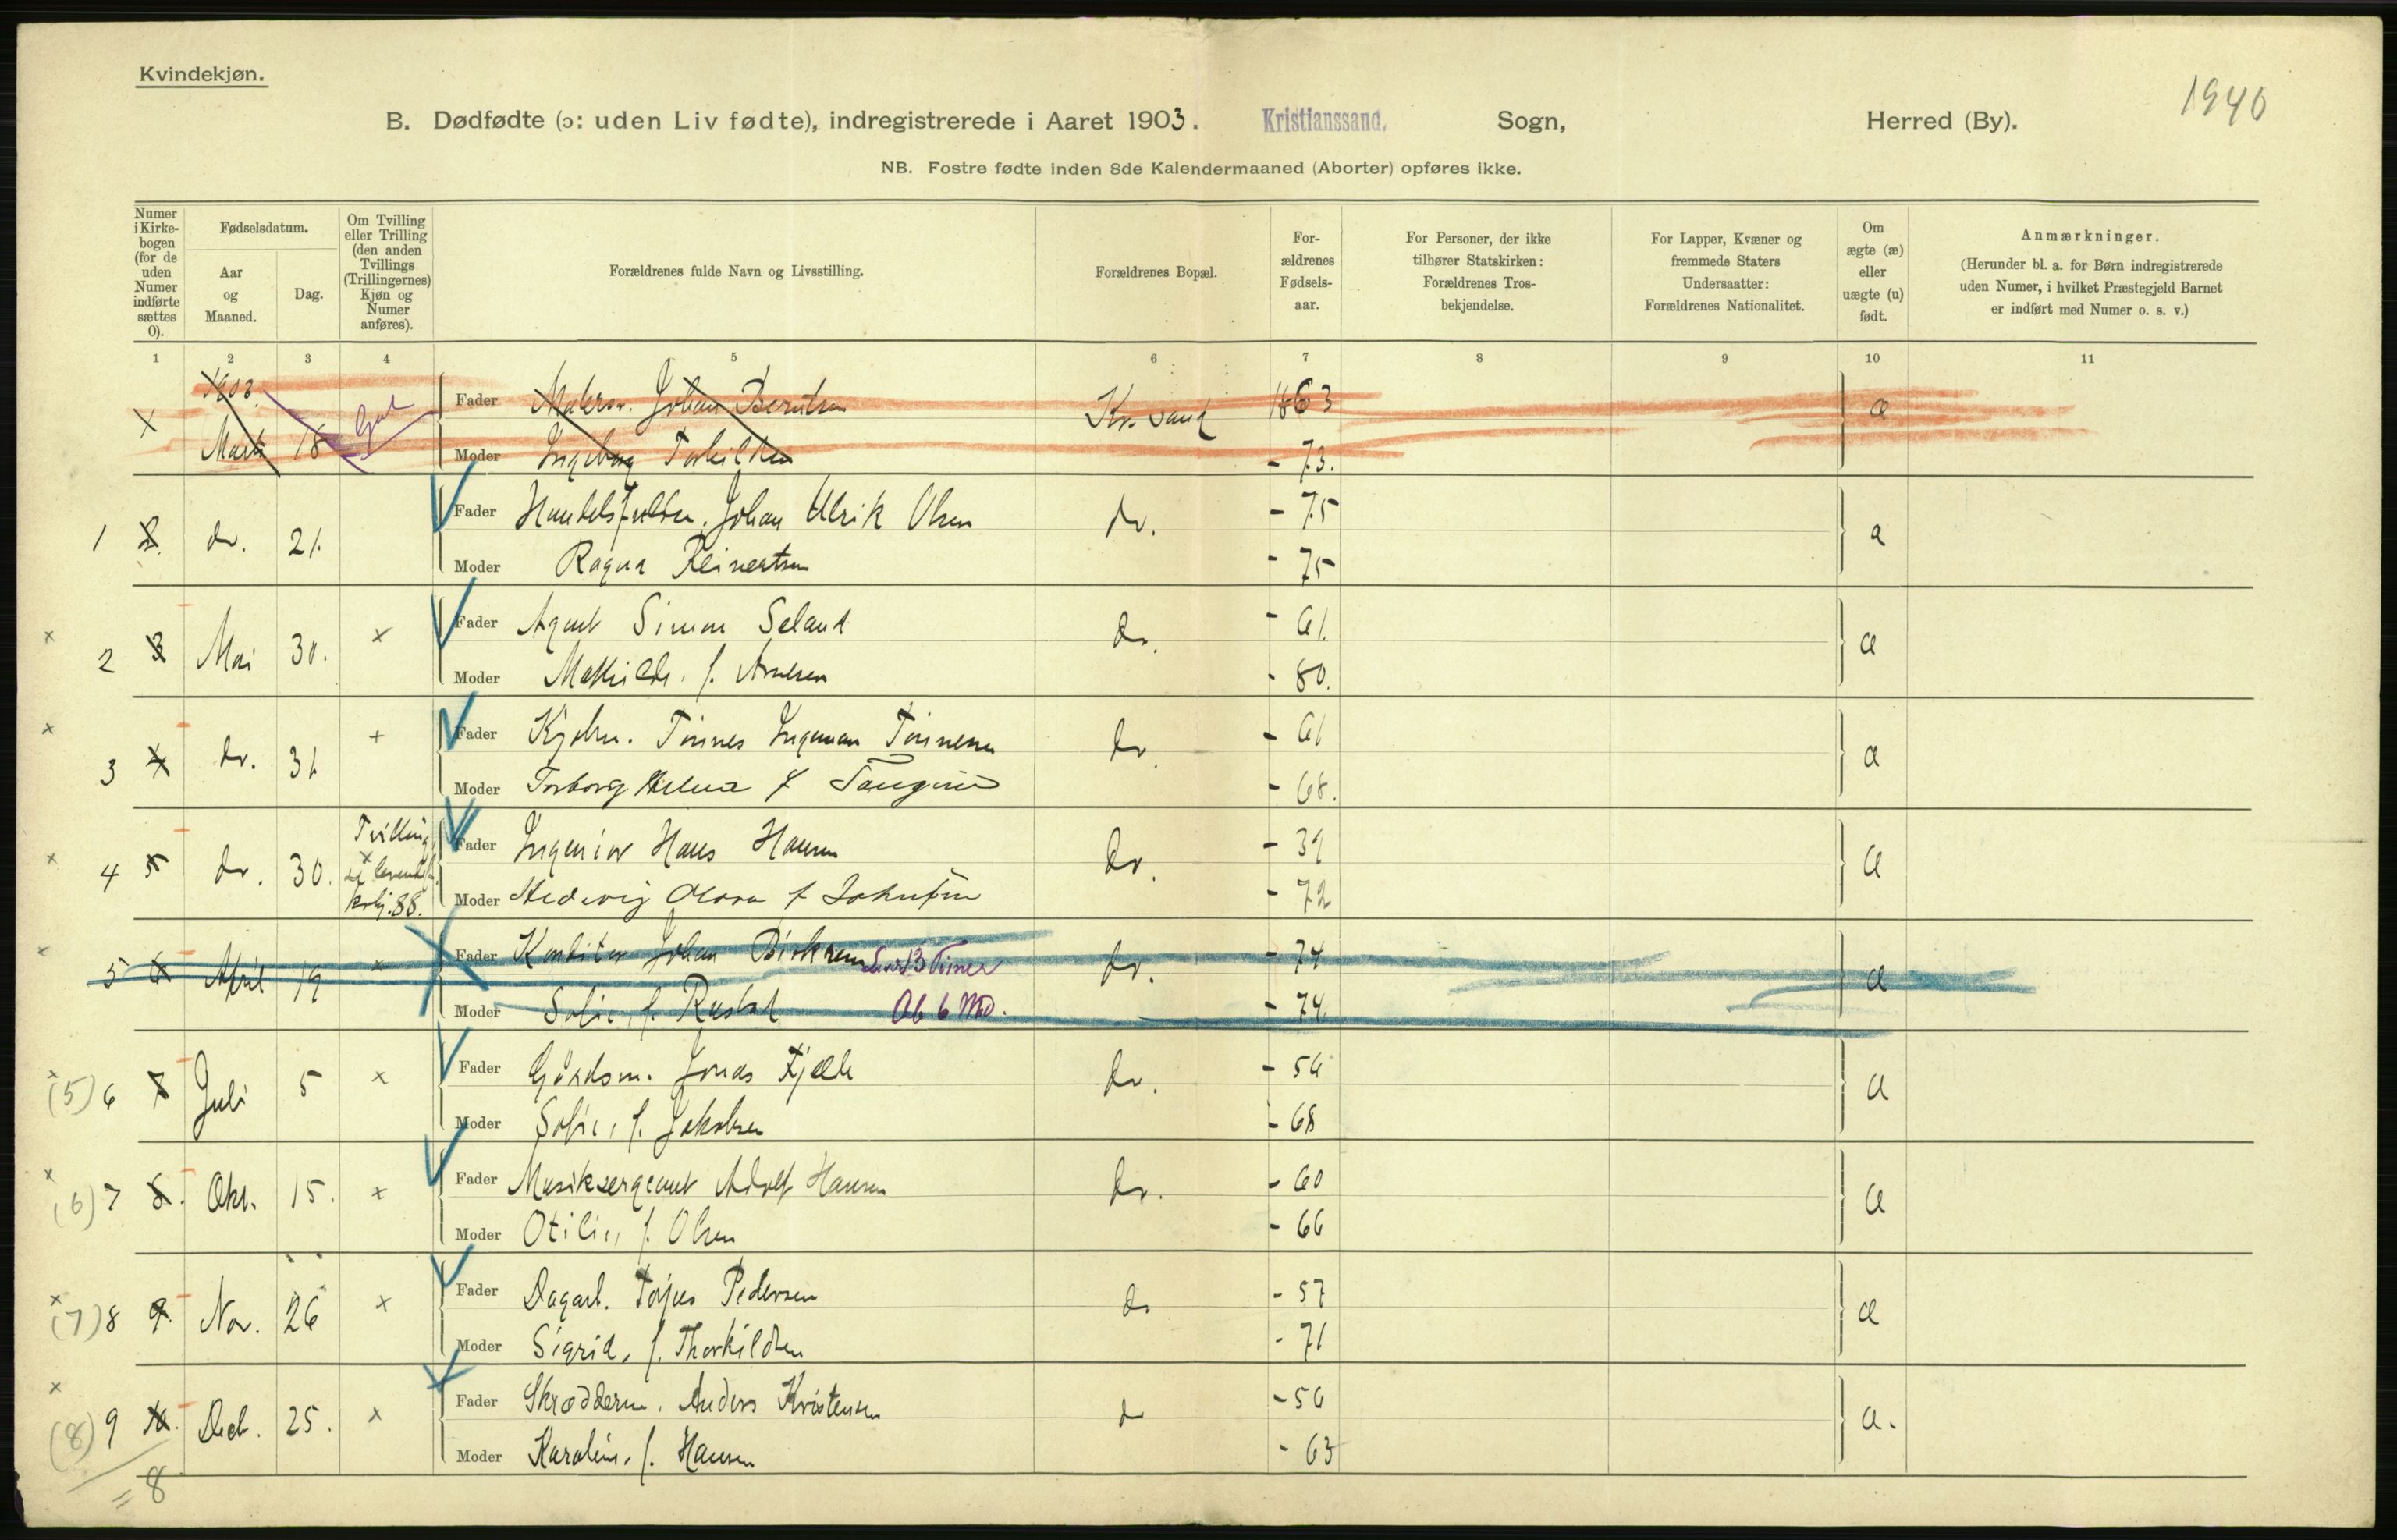 Kvindekjøn.
1940
B. Dødfødte (ɔ: uden Liv fødte), indregistrerede i Aaret 1903. Kristianssand. Sogn, Herred (By).
NB. Fostre fødte inden 8de Kalendermaaned (Aborter) opføres ikke.
Numer i Kirke-bogen (for de uden Numer indførte sættes 0).
Fødselsdatum.
Aar og Maaned.
Dag.
Om Tvilling eller Trilling (den anden Tvillings (Trillingernes) Kjøn og Numer anføres).
Forældrenes fulde Navn og Livsstilling.
Forældrenes Bopæl.
For-ældrenes Fødsels-aar.
For Personer, der ikke tilhører Statskirken: Forældrenes Tros-bekjendelse.
For Lapper, Kvæner og fremmede Staters Undersaatter: Forældrenes Nationalitet.
Om ægte (æ) eller uægte (u) født.
Anmærkninger.
(Herunder bl. a. for Børn indregistrerede uden Numer, i hvilket Præstegjeld Barnet er indført med Numer o. s. v.)
1 2 3 4 5 6 7 8 9 10 11
1903. Fader Malersv. Johan Berntsen Kr.sand 1863 æ
Marts 18 Gal Moder Ingeborg Torkildsen - 73.
Fader Johan Ulrik Olsen - 75
1 2. do. 21. do. æ
Moder Ragna Reinertsen - 75
Fader Agent Simon Seland - 61.
2 3 Mai 30. x do. æ
Moder Mathilde, f. Arnesen - 80.
Fader Tønnes Ingeman Tønnesen - 61
3 4 do. 31. + do. æ
Moder Torborg Helena f - 68.
Tvilling
Fader Ingeniør Hans Hansen - 39
4 5 do. 30. do. æ
88. Moder Hedevig Olava f Johnsen - 72
Fader Konditor Johan Birkrem Levet 3 Timer - 74
5 6 April 19 x do. æ
Moder Sofie, f. Rustad Ab 6 Md. - 74
Fader Gårdsm. Jonas Fjelde - 56
(5) 6 7 Juli 5 x do. æ
Moder Sofie, f. Jakobsen - 68
Fader Musiksergeant Adolf Hansen - 60
(6) 7 8. Okt. 15. x do. æ
Moder Otilie, f. Olsen - 66
Fader Dagarb. Torjus Pedersen - 57
(7) 8 9. Nov. 26 x do æ
Moder Sigrid, f. Thorkildsen - 71
Fader Skrædderm. Anders Kristensen - 56
(8) 9 10. Deb. 25. x do æ.
Moder Karoline, f. Hansen - 63
= 8